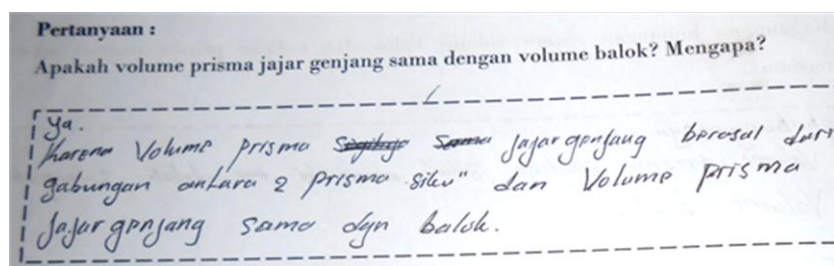 Pertanyaan :
Apakah volume prisma jajar genjang sama dengan volume balok? Mengapa?
Ya.
Karena Volume prisma Jajargenjang berasal dari
gabungan antara 2 prisma siku" dan Volume prisma
Jajargenjang sama dgn balok.